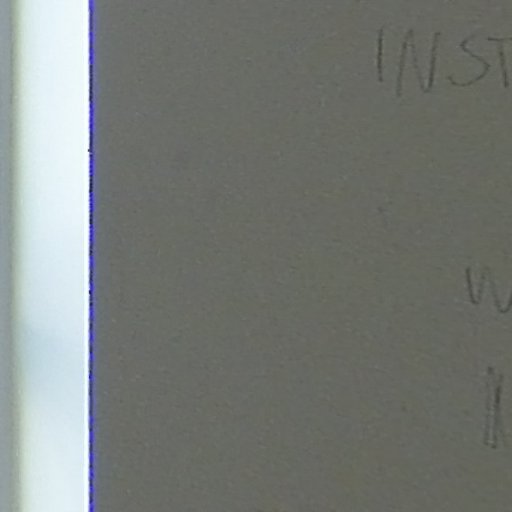 INST
W